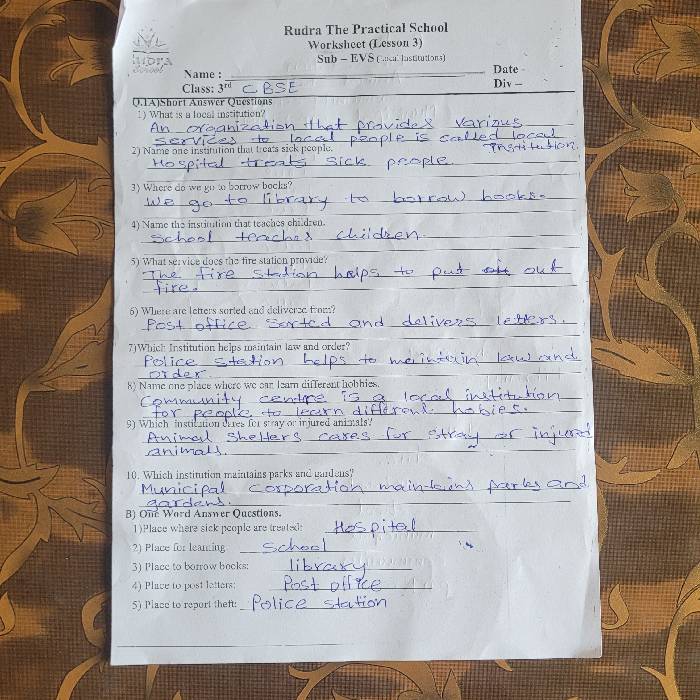 Rudra The Practical School
Worksheet (Lesson 3)
Sub – EVS (Local Institutions)
RUDRA
School
Name :
Date -
Class: 3rd CBSE
Div –
Q.1A)Short Answer Questions
1) What is a local institution?
An organization that provides various
services to local people is called local
institution
2) Name one institution that treats sick people.
Hospital treats sick people.
3) Where do we go to borrow books?
We go to library to borrow books.
4) Name the institution that teaches children.
School teaches children.
5) What service does the fire station provide?
The fire station helps to put out
fire.
6) Where are letters sorted and delivered from?
Post office sorted and delivers letters.
7)Which Institution helps maintain law and order?
Police station helps to maintain law and
order.
8) Name one place where we can learn different hobbies.
Community centre is a local institution
for people to learn different hobies.
9) Which institution cares for stray or injured animals?
Animal Shelters cares for stray or injured
animals.
10. Which institution maintains parks and gardens?
Municipal corporation maintains parks and
gardens.
B) One Word Answer Questions.
1)Place where sick people are treated: Hospital
2) Place for learning School
3) Place to borrow books: library
4) Place to post letters: Post office
5) Place to report theft: Police station